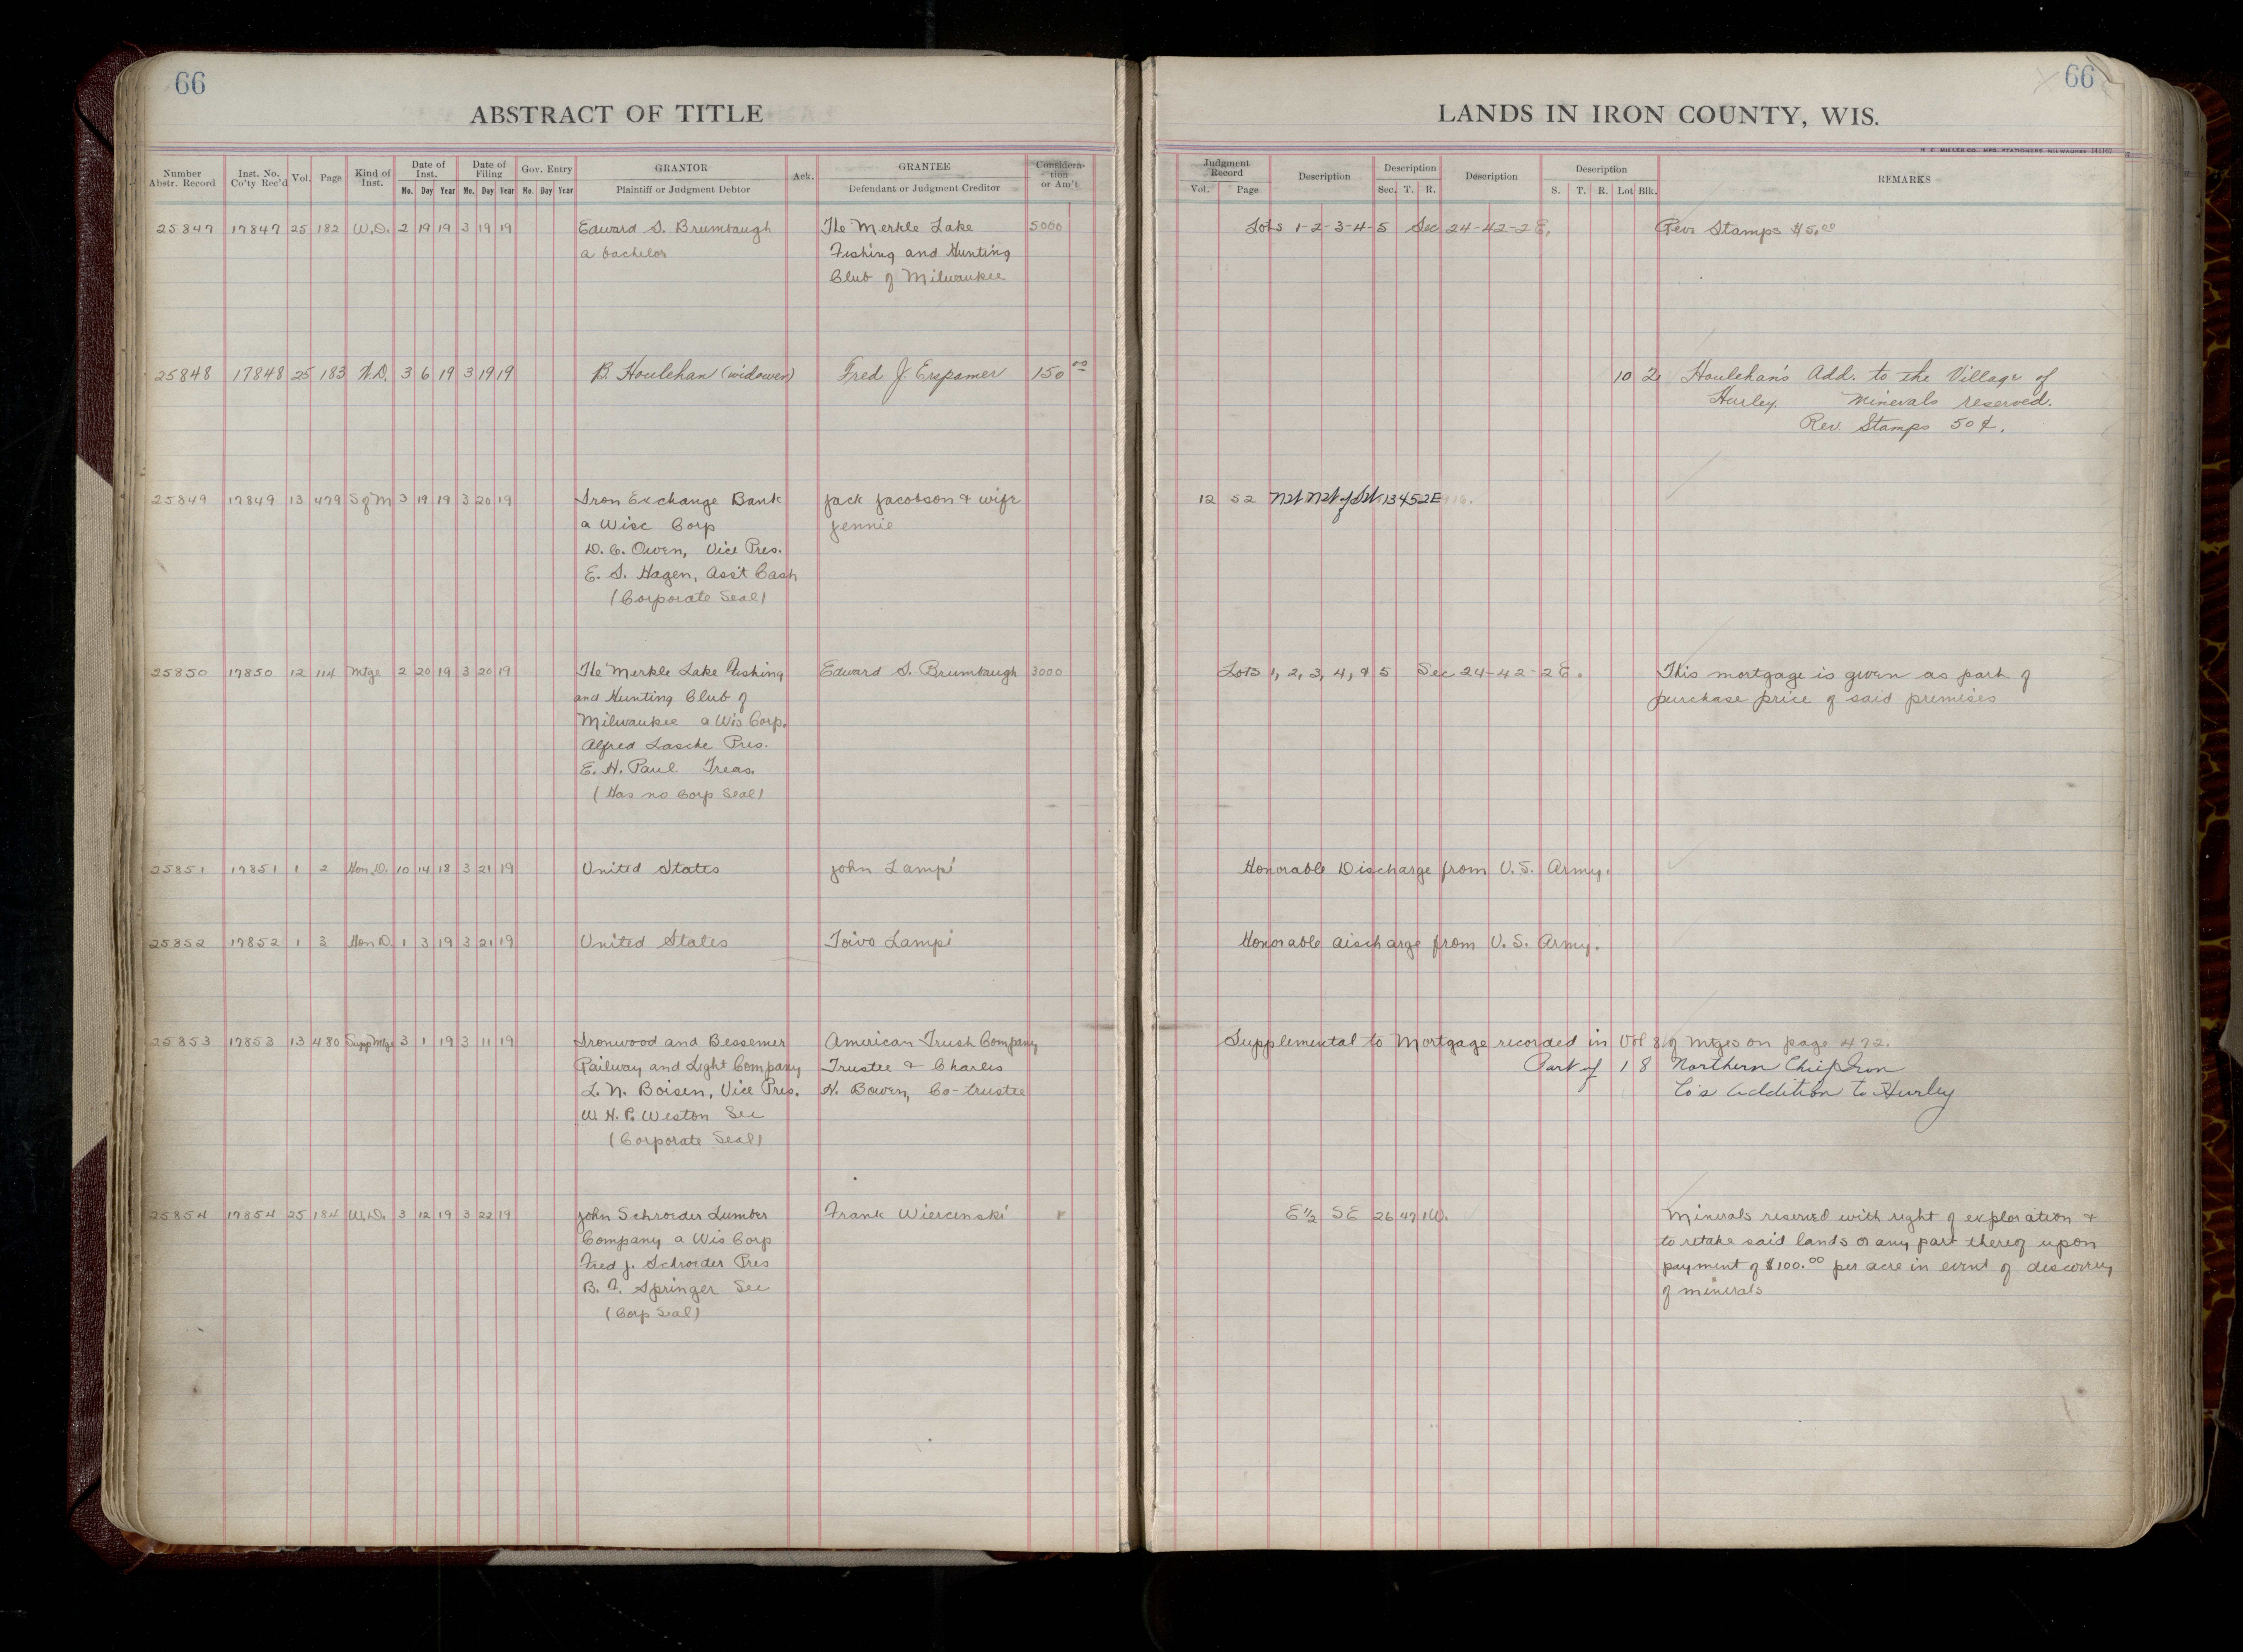 66
ABSTRACT OF TITLE
Number Abstr. Record Inst. No. Co'ty Rec'd Vol. Page Kind of Inst. Date of Inst. Date of Filing Gov. Entry GRANTOR Ack. GRANTEE Considera-tion or Am't
Mo. Day Year Mo. Day Year Mo. Day Year Plaintiff or Judgment Debtor Defendant or Judgment Creditor
25847 17847 25 182 W.D. 2 19 19 3 19 19 Edward S. Brumbaugh The Merkle Lake 5000
a bachelor Fishing and Hunting
Club of Milwaukee
25848 17848 25 183 W.D. 3 6 19 3 19 19 B. Houlehan (widower) Fred J. Erspamer 150 00
25849 17849 13 479 S of M 3 19 19 3 20 19 Iron Exchange Bank Jack Jacobson & wife
a Wisc Corp Jennie
D. C. Owen, Vice Pres.
E. S. Hagen, Ass't Cash
(Corporate Seal)
25850 17850 12 114 Mtge 2 20 19 3 20 19 The Merkle Lake Fishing Edward S. Brumbaugh 3000
and Hunting Club of
Milwaukee a Wis Corp.
Alfred Lasche Pres.
E. H. Paul Treas.
(Has no Corp Seal)
25851 17851 1 2 Hon. D. 10 14 18 3 21 19 United States John Lampi
25852 17852 1 3 Hon D. 1 3 19 3 21 19 United States Toivo Lampi
25853 17853 13 480 Supp Mtge 3 1 19 3 11 19 Ironwood and Bessemer American Trust Company
Railway and Light Company Trustee & Charles
L. N. Boisen, Vice Pres. H. Bowen, Co-trustee
W. H. P. Weston Sec
(Corporate Seal)
25854 17854 25 184 W.D. 3 12 19 3 22 19 John Schroeder Lumber Frank Wiercinski
Company a Wis Corp
Fred J. Schroeder Pres
B. F. Springer Sec
(Corp Seal)
66
LANDS IN IRON COUNTY, WIS.
H. C. MILLER CO. MFG. STATIONERS, MILWAUKEE
Judgment Record Description Description Description Description REMARKS
Vol. Page Sec. T. R. S. T. R. Lot Blk.
Lots 1-2-3-4-5 Sec 24-42-2E. Rev. Stamps $5.00
10 2 Houlehan's Add. to the Village of
Hurley. Minerals reserved.
Rev. Stamps 50¢.
12 52 13 45 2E
Lots 1, 2, 3, 4, & 5 Sec 24-42-2E. This mortgage is given as part of
purchase price of said premises
Honorable Discharge from U.S. Army.
Honorable discharge from U.S. Army.
Supplemental to Mortgage recorded in Vol 8 of Mtges on page 472.
Part of 1 8 Northern Chief Iron
Co's Addition to Hurley
E½ SE 26 47 1W. Minerals reserved with right of exploration &
to retake said lands or any part thereof upon
payment of $100.00 per acre in event of discovery
of minerals